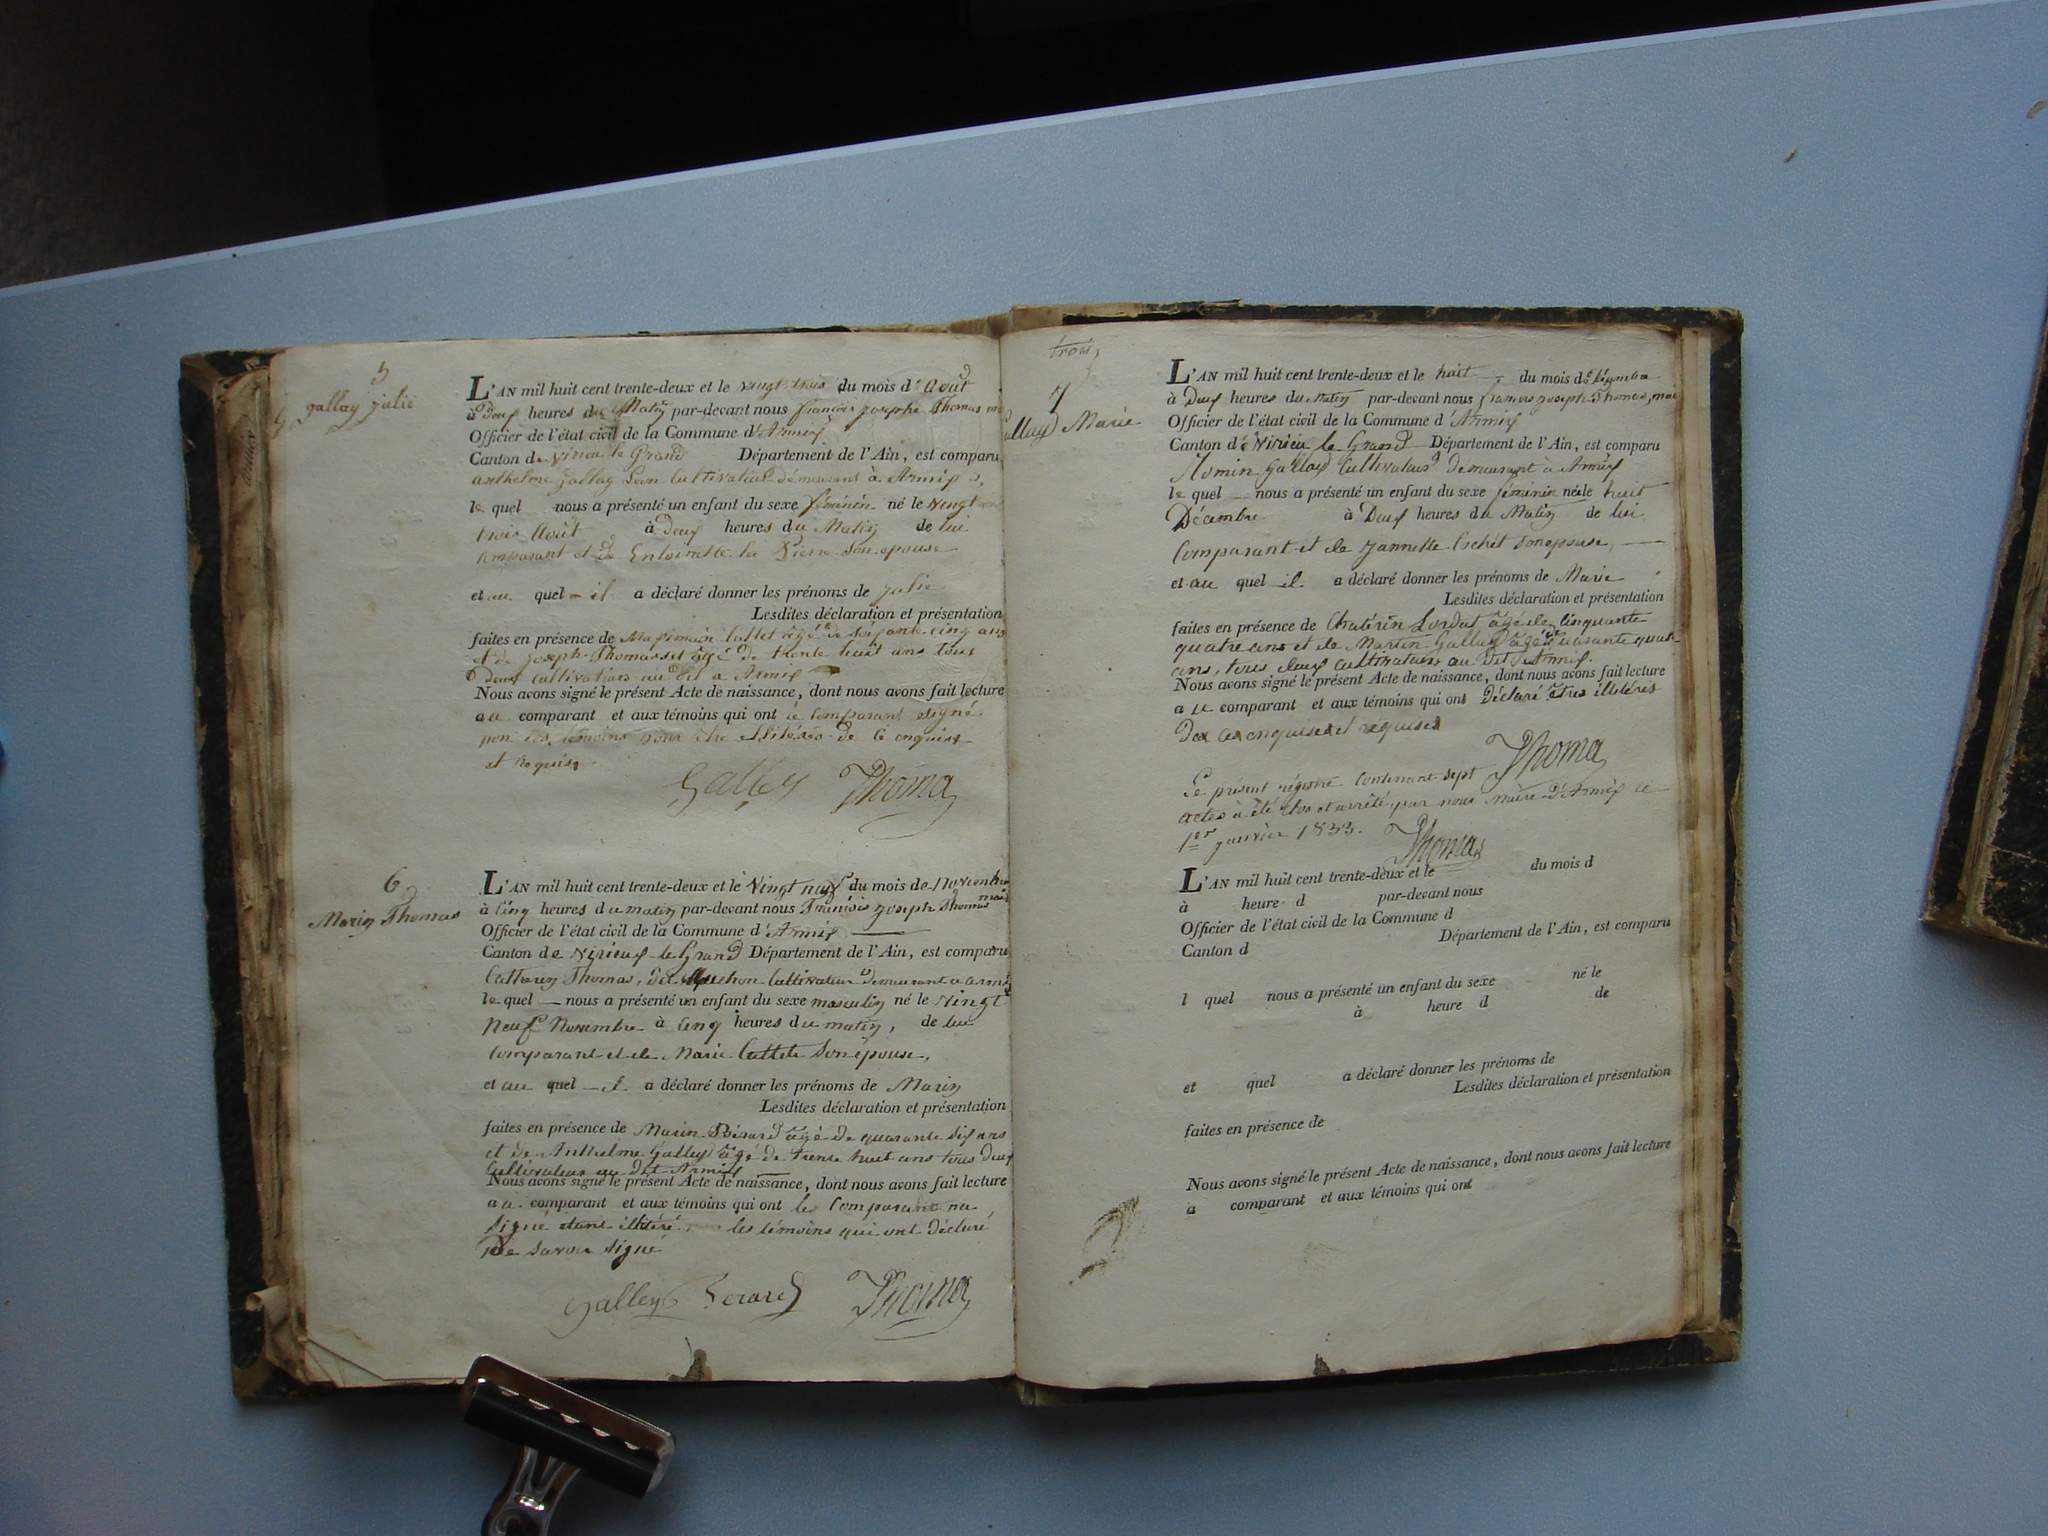 5
gallay julie
L'AN mil huit cent trente-deux et le vingt-trois du mois d'Août
à deux heures du Matin par-devant nous françois josephe Thomas
Officier de l'état civil de la Commune d'Armix
Canton de virieu le Grand Département de l'Ain, est comparu
anthelme gallay Cultivateur démeurant à Armix
le quel nous a présenté un enfant du sexe féminin né le vingt
trois Août à deux heures du Matin de lui
comparant et de Entoinette la son epouse
et au quel il a déclaré donner les prénoms de julie
Lesdites déclaration et présentation
faites en présence de Maximain Cullet âgé de soixante cinq ans
et de joseph Thomasset âgé de trente huit ans tous
deux cultivateurs au dit a Armix
Nous avons signé le présent Acte de naissance, dont nous avons fait lecture
au comparant et aux témoins qui ont le comparant signé
non les témoins pour être illitérés de ce enquis
et requis
Galley Thomas
6
Marin Thomas
L'AN mil huit cent trente-deux et le vingt neuf du mois de Novembre
à cinq heures du matin par-devant nous François joseph Thomas maire
Officier de l'état civil de la Commune d'Armix
Canton de virieux le Grand Département de l'Ain, est comparu
Thomas, dit Cultivateur demeurant a armix
le quel nous a présenté un enfant du sexe masculin né le vingt
neuf Novembre à cinq heures du matin, de lui
comparant et de Marie Cullet son épouse,
et au quel il a déclaré donner les prénoms de Marin
Lesdites déclaration et présentation
faites en présence de Marin Bérard âgé de quarante dix ans
et de Anthelme Galley âgé de trente huit ans tous deux
Cultivateur au dit Armix
Nous avons signé le présent Acte de naissance, dont nous avons fait lecture
au comparant et aux témoins qui ont le comparant na
signé étant illitéré les témoins qui ont déclaré
de savoir signé
Galley Berard Thomas
trois,
7
allay Marie
L'AN mil huit cent trente-deux et le huit du mois de décembre
à Deux heures du Matin par-devant nous françois joseph Thomas, mai
Officier de l'état civil de la Commune d'Armix
Canton de Virieu le Grand Département de l'Ain, est comparu
Gallay Cultivateur demeurant à Armix
le quel nous a présenté un enfant du sexe féminin née le huit
Décembre à Deux heures du Matin de lui
comparant et de jannette Cochet son epouse,
et au quel il a déclaré donner les prénoms de Marie
Lesdites déclaration et présentation
faites en présence de Chatérin âgé de cinquante
quatre ans et de Martin Gallay âgé de quarante quatre
ans, tous deux cultivateurs au dit Armix.
Nous avons signé le présent Acte de naissance, dont nous avons fait lecture
au comparant et aux témoins qui ont Déclaré êtres illitérés
De ce enquises et requises
Thomas
Le présent régistre contenant sept
actes à été clos et arrêté par nous Maire d'Armix ce
1er janvier 1833.
Thomas
L'AN mil huit cent trente-deux et le du mois d
à heure d par-devant nous
Officier de l'état civil de la Commune d
Canton d Département de l'Ain, est comparu
l quel nous a présenté un enfant du sexe né le
à heure d de
et quel a déclaré donner les prénoms de
Lesdites déclaration et présentation
faites en présence de
Nous avons signé le présent Acte de naissance, dont nous avons fait lecture
a comparant et aux témoins qui ont